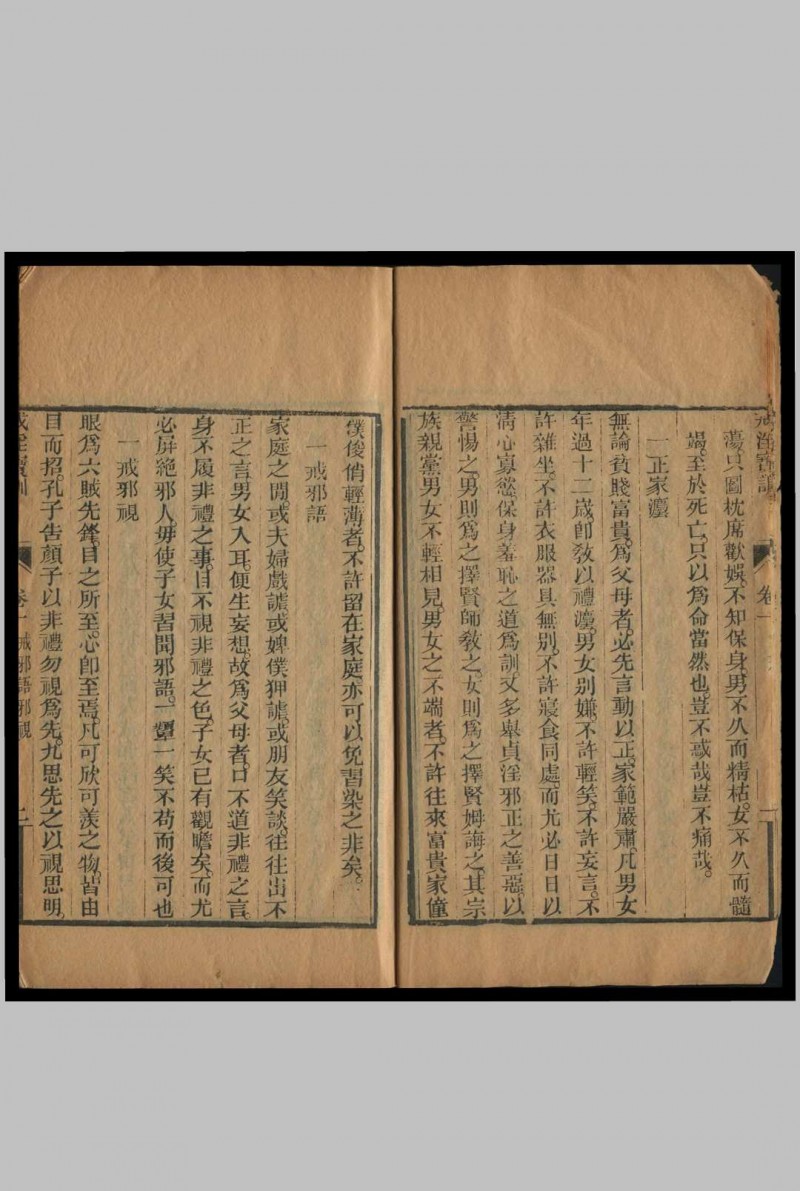 戒淫寶訓 卷一
蕩只圖枕席歡娛。不知保身。男不久而精枯。女不久而髓
竭。至於死亡。只以為命當然也。豈不惑哉豈不痛哉。
一正家灋
無論貧賤富貴。爲父母者。必先言動以正。家範嚴肅。凡男女
年過十二歲卽敎以禮灋。男女別嫌。不許輕笑。不許妄言。不
許雜坐。不許衣服器具無別。不許寢食同處。而尤必日日以
淸心寡慾保身羞恥之道爲訓又多舉貞淫邪正之善惡。以
警惕之。男則爲之擇賢師敎之。女則爲之擇賢姆誨之。其宗
族親黨男女不輕相見。男女之不端者。不許往來富貴家僮
僕俊俏輕薄者。不許留在家庭亦可以免習染之非矣。
一戒邪語
家庭之閒。或夫婦戲謔或婢僕狎謔。或朋友笑談。往往出不
正之言男女入耳。便生妄想。故爲父母者。口不道非禮之言。
身不履非禮之事。目不視非禮之色。子女已有觀瞻矣。而尤
必屏絕邪人。毋使子女習聞邪語。一顰一笑不苟而後可也
一戒邪視
眼爲六賊先鋒。目之所至。心卽至焉。凡可欣可羨之物。皆由
目而招。孔子告顏子以非禮勿視爲先。九思先之以視思明。
戒淫寶訓 卷一 戒邪語邪視 二